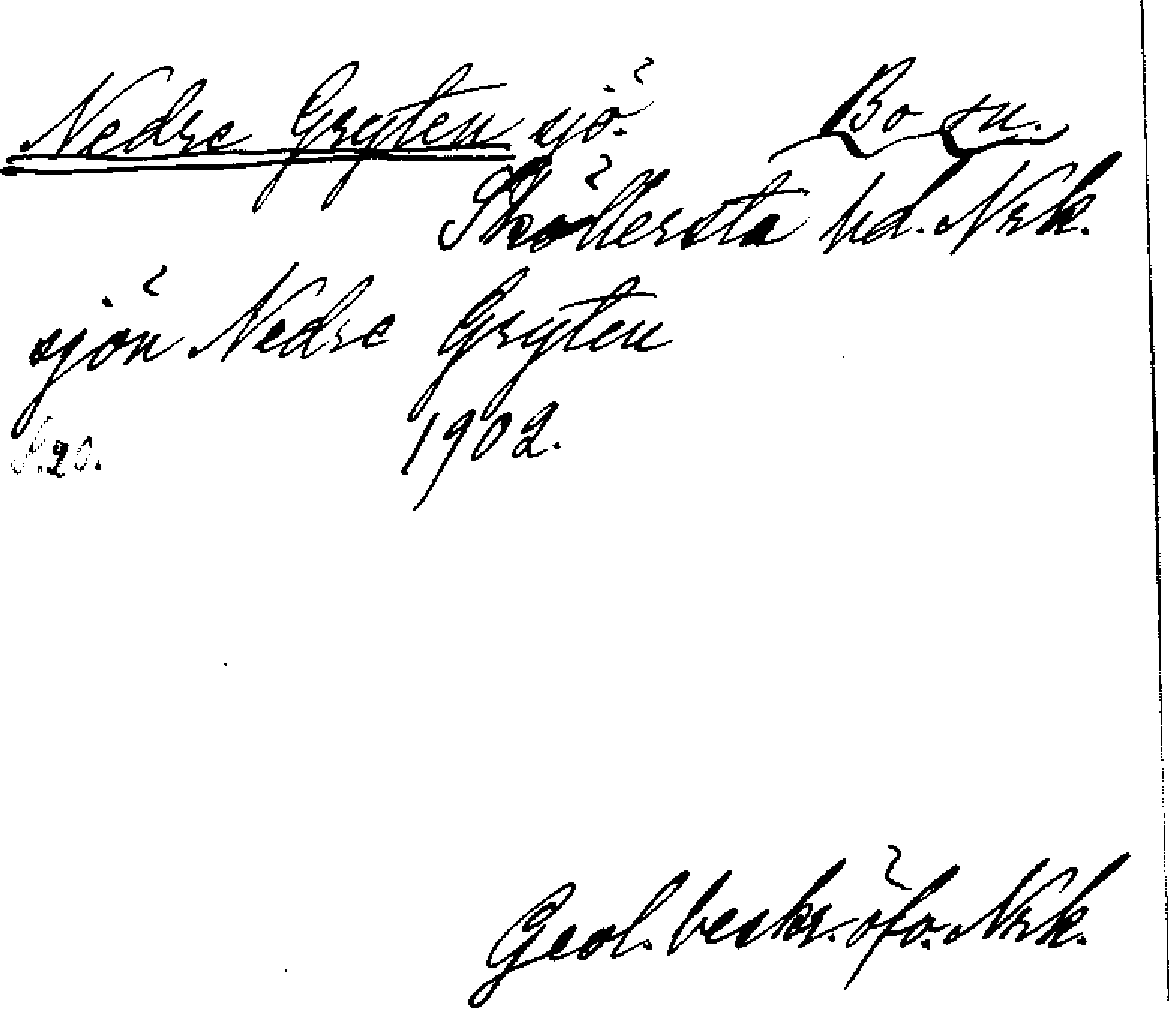 Nedre Gryten sjö. Bo sn.
Sköllersta hd. Nrk.
sjön Nedre Gryten
S.20. 1902.
Geol. beskr. öfv. Nrk.